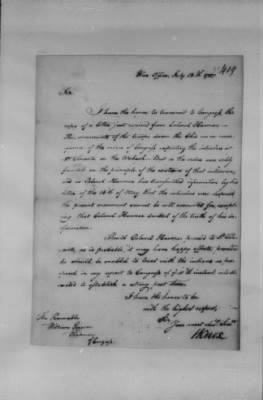 409
War Office, July 18th 1787
Sir
I have the honor to transmit to Congress the
copy of a letter just received from Colonel Harmar
the movements of the troops down the Ohio in
of the voice of Congress respecting the intruders at
St Vincents on the Wabash. But as the voice was only
founded on the principle of the existence of that intrusion,
and as Colonel Harmar has transmitted information by his
letter of the 14th of May, that the intruders were
the present movement cannot be well accounted for, excepting
that Colonel Harmar doubted of the truth of his
information.
Should Colonel Harmar proceed to St Vincents
as is probable, it may have happy effects provided
he should be enabled to treat with the indians as proposed
in my report to Congress of instant
to establish a strong post there.
I have the honor to be
with the highest respect,
Sir
Your most obed Servt
HKnox
The Honorable
William
of Congress